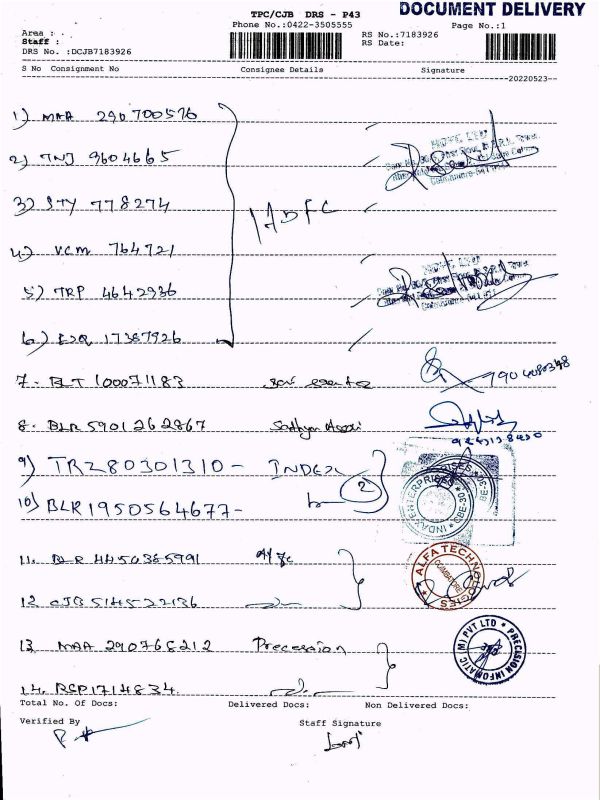 DOCUMENT DELIVERY
TPC/CJB DRS - P43
Phone No.:0422-3505555
Page No.:1
Area : .
Staff :
DRS No. :DCJB7183926
RS No.:7183926
RS Date:
S No Consignment No Consignee Details Signature
20220523
1) MAA 290700576
2) TNJ 9604665
3) STY 778274
HDFC
4) VCM 764721
5) TRP 4642936
6) 17387926
7. BLT 100071183
8. BLR 5901262867 Sathya
9) TRZ80301310- INDEX
2
10) BLR1950564677-
INDAX ENTERPRISES * CBE-30 *
11. BLR 4450385991 Alfa
ALFA TECHNOLOGIES
COIMBATORE
12. CJB 514522136
13. MAA 290768212 Precession
PRECISION INFOMATIC (M) PVT LTD *
14. BSP1714834.
Total No. Of Docs: Delivered Docs: Non Delivered Docs:
Verified By Staff Signature